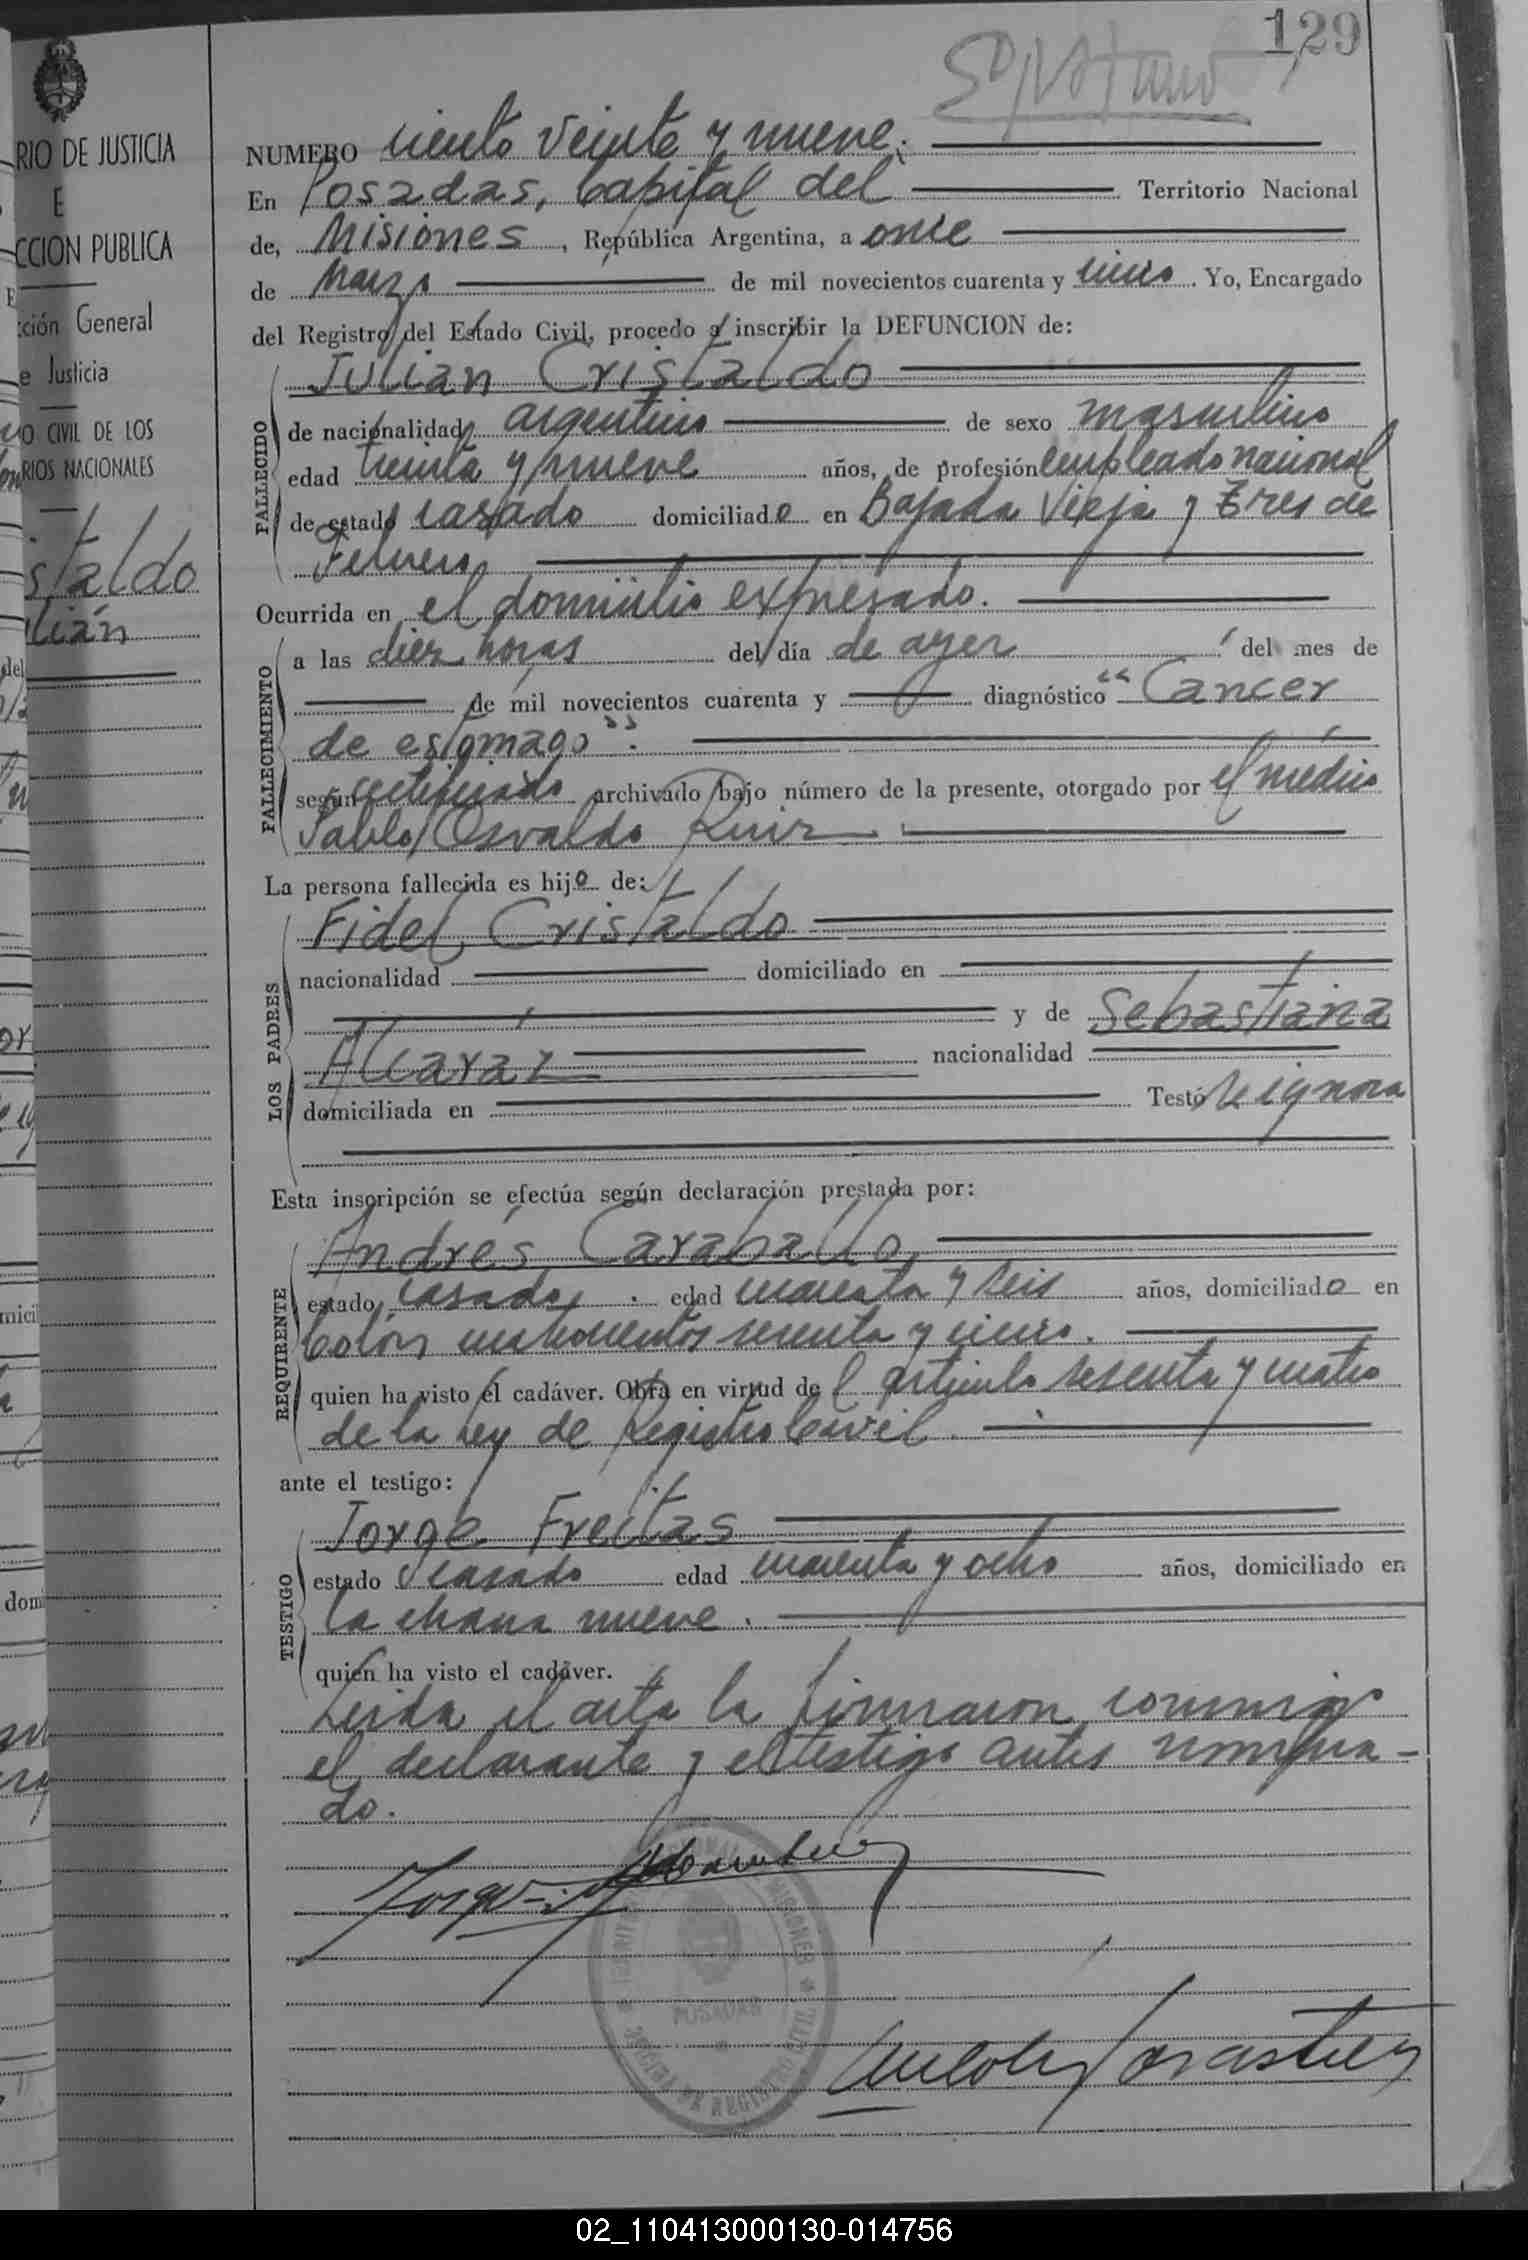 129
RIO DE JUSTICIA
E
CCION PUBLICA
ción General
e Justicia
O CIVIL DE LOS
RIOS NACIONALES
staldo
lián
NUMERO ciento veinte y nueve.
En Posadas, Capital del Territorio Nacional
de, Misiones, República Argentina, a once
de Marzo de mil novecientos cuarenta y cinco. Yo, Encargado
del Registro del Estado Civil, procedo a inscribir la DEFUNCION de:
Julián Cristaldo
FALLECIDO
de nacionalidad argentino de sexo masculino
edad treinta y nueve años, de profesión empleado nacional
de estado casado domiciliado en Bajada Vieja y Tres de
Febrero
Ocurrida en el domicilio expresado.
FALLECIMIENTO
a las diez horas del día de ayer del mes de
de mil novecientos cuarenta y diagnóstico "Cancer
de estómago".
según certificado archivado bajo número de la presente, otorgado por el médico
Pablo Osvaldo Ruiz
La persona fallecida es hijo de:
LOS PADRES
Fidel Cristaldo
nacionalidad domiciliado en
y de Sebastiana
Alcaráz nacionalidad
domiciliada en Testó se ignora
Esta inscripción se efectúa según declaración prestada por:
REQUIRENTE
Andrés Caraballo
estado casado. edad cuarenta y seis años, domiciliado en
Colón cuatrocientos sesenta y cinco.
quien ha visto el cadáver. Obra en virtud del artículo sesenta y cuatro
de la ley de Registro Civil.
ante el testigo:
TESTIGO
Jorge Freitas
estado casado edad cuarenta y ocho años, domiciliado en
la chacra nueve.
quien ha visto el cadáver.
Leida el acta la firmaron conmigo
el declarante y el testigo antes nombra-
do.
POSADAS
02_110413000130-014756